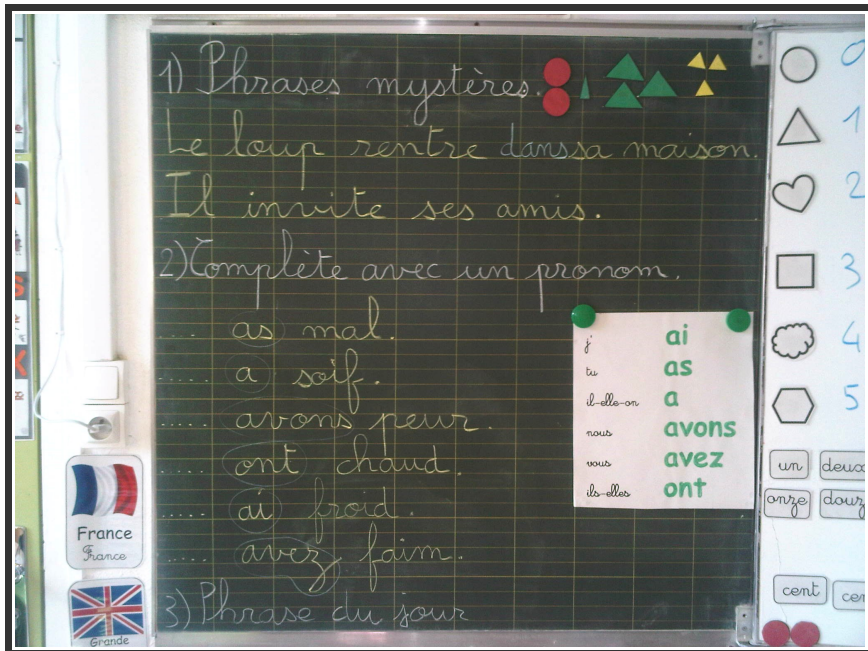 1) Phrases mystères.
Le loup rentre dans sa maison.
Il invite ses amis.
2) Complète avec un pronom.
..... as mal.
..... a soif.
..... avons peur.
..... ont chaud.
..... ai froid.
..... avez faim.
3) Phrase du jour
j' ai
tu as
il-elle-on a
nous avons
vous avez
ils-elles ont
France
France
Grande
0
1
2
3
4
5
un deux
onze
cent